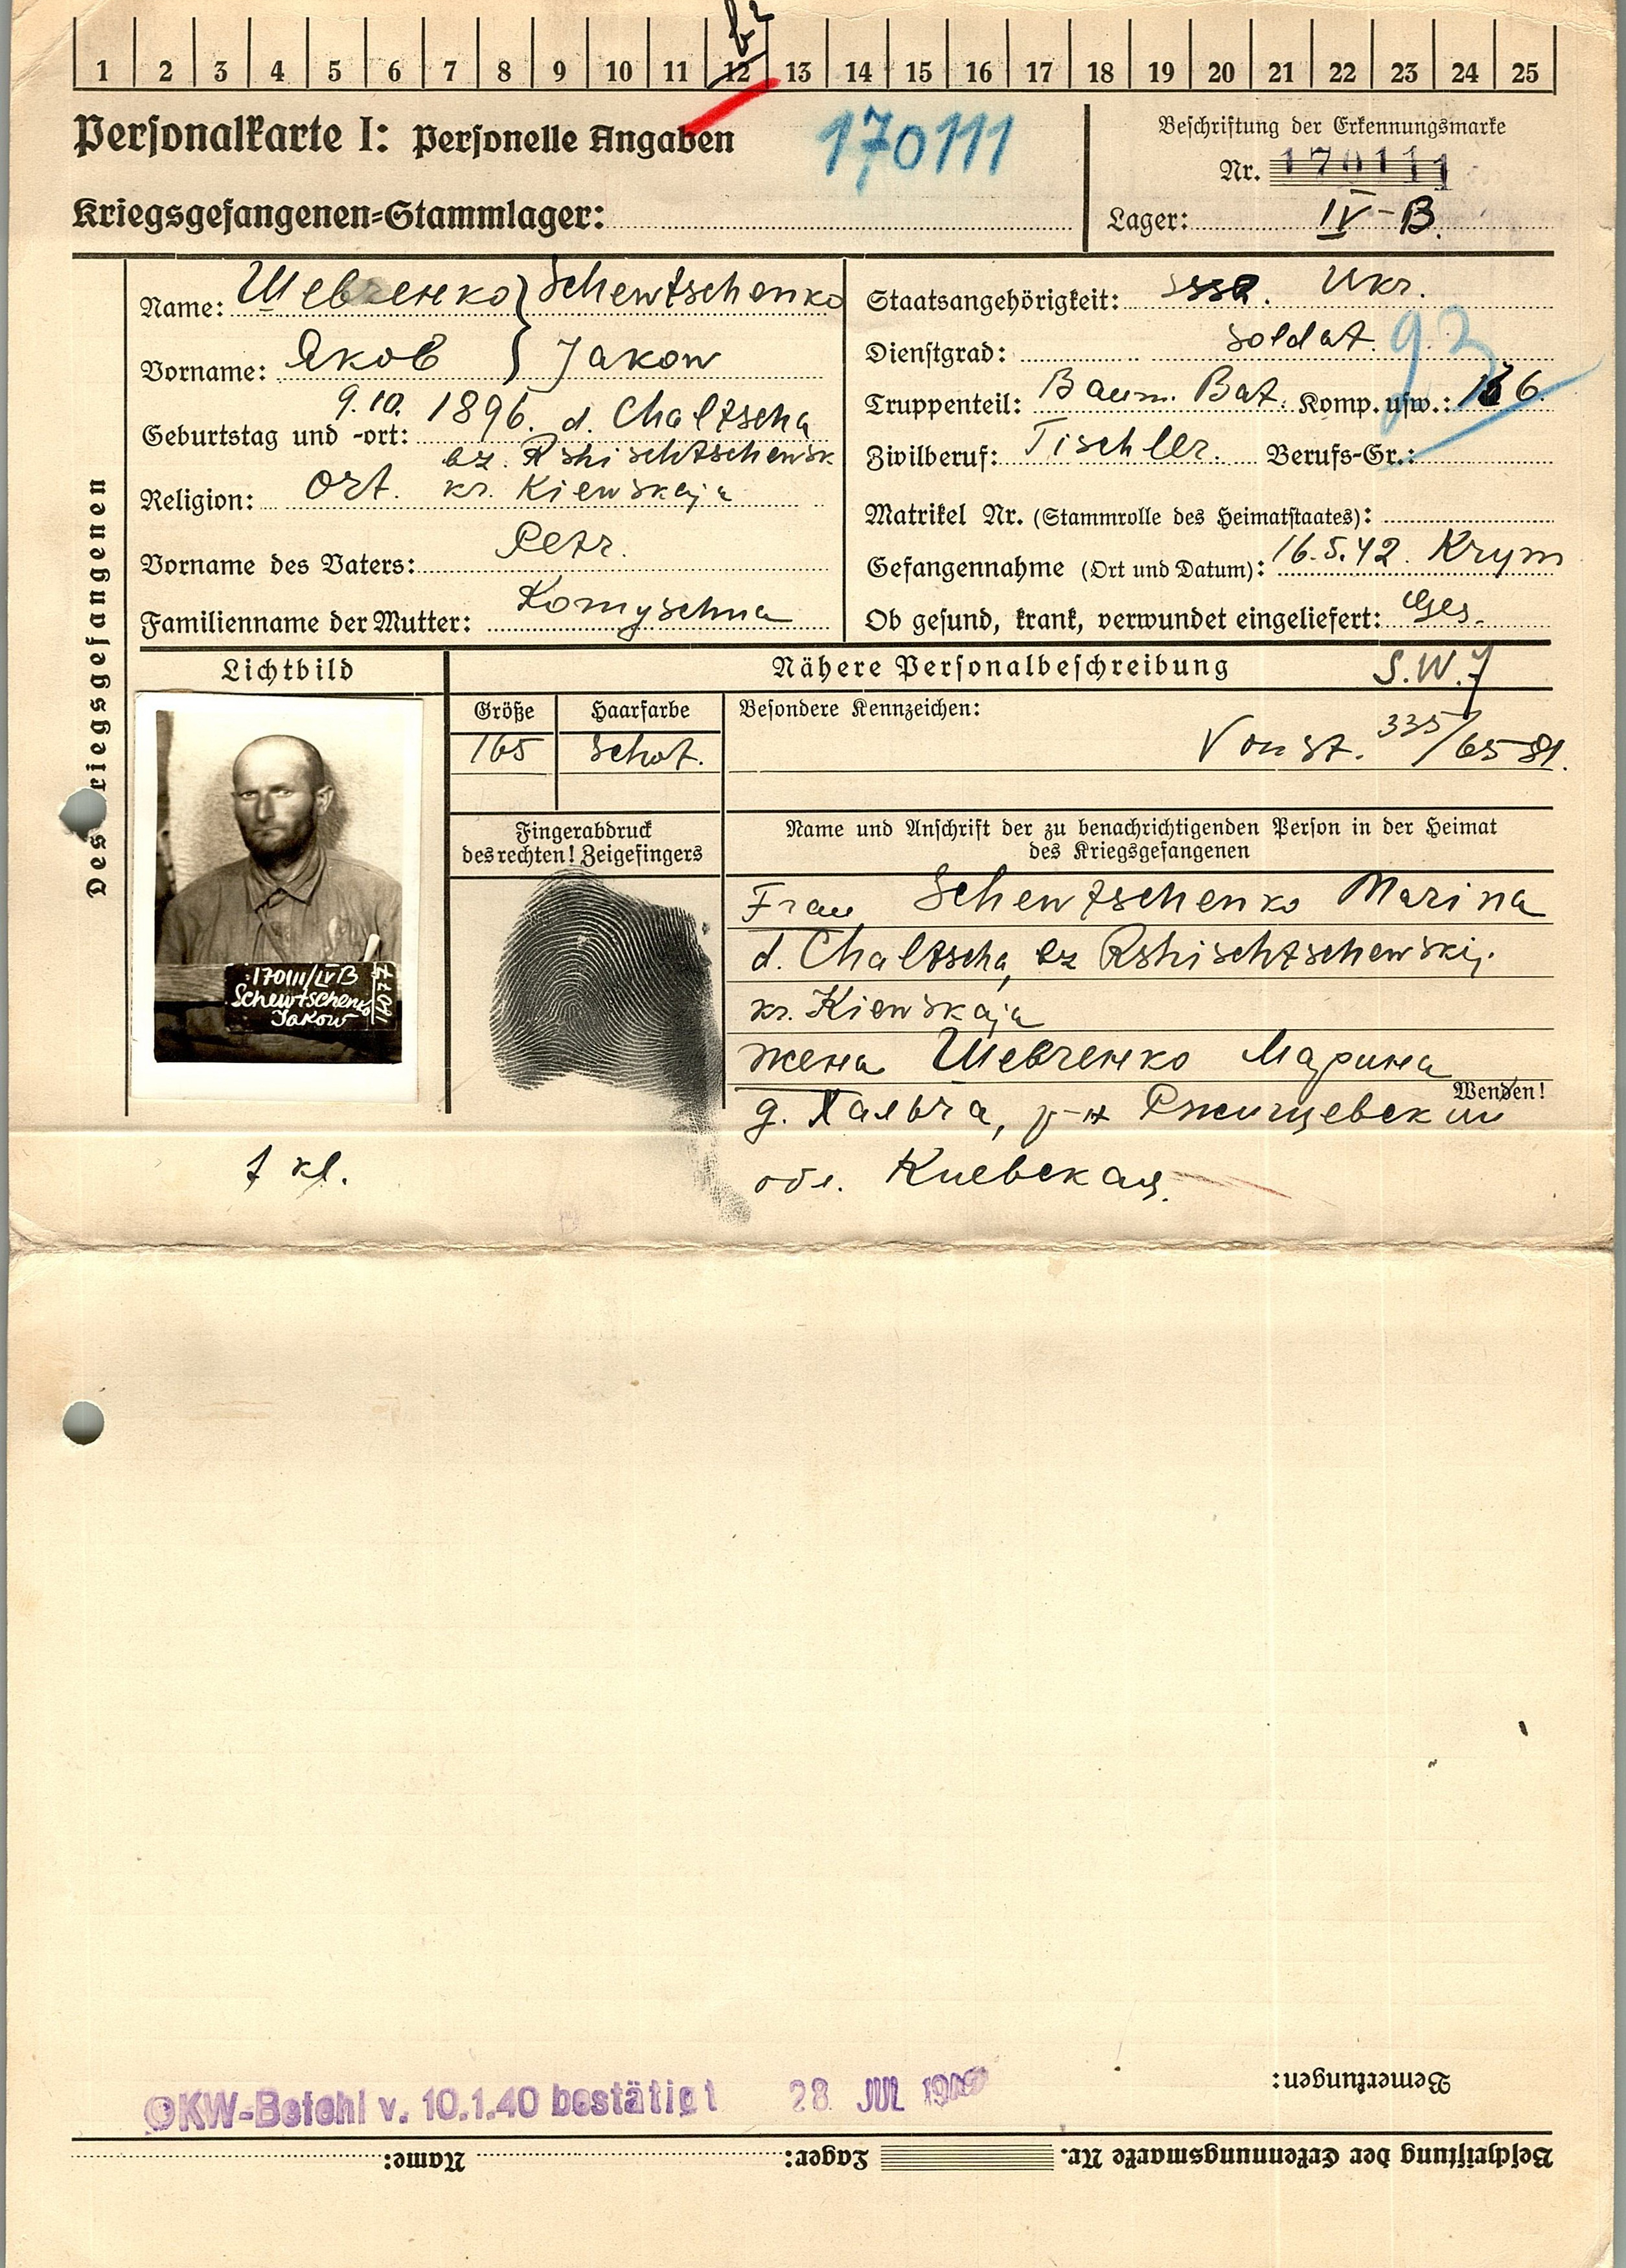 1 2 3 4 5 6 7 8 9 10 11 12 13 14 15 16 17 18 19 20 21 22 23 24 25
Personalkarte I: Personelle Angaben
170111
Beschriftung der Erkennungsmarke
Nr. 170111
Kriegsgefangenen-Stammlager:
Lager: IV-B.
Des Kriegsgefangenen
Name: Шевченко } Schewtschenko
Vorname: Яков } Jakow
Geburtstag und -ort: 9.10. 1896. d. Chaltscha
bz. Rshischtschewsk
Religion: Ort. kr. Kiewskaja
Vorname des Vaters: Petr.
Familienname der Mutter: Komyschna
Staatsangehörigkeit: Ukr.
Dienstgrad: Soldat.
93
Truppenteil: Baum. Bat. Komp. usw.:
Zivilberuf: Tischler. Berufs-Gr.:
Matrikel Nr. (Stammrolle des Heimatstaates):
Gefangennahme (Ort und Datum): 16.5.42. Krym
Ob gesund, krank, verwundet eingeliefert: Ges.
Lichtbild
Nähere Personalbeschreibung S.W.
Größe Haarfarbe Besondere Kennzeichen:
165
Von St. 335/
Fingerabdruck
des rechten! Zeigefingers
170111/IVB
Schewtschenko
Jakow
Name und Anschrift der zu benachrichtigenden Person in der Heimat
des Kriegsgefangenen
Frau Schewtschenko Marina
d. Chaltscha, bz Rshischtschewskij.
kr. Kiewskaja
жена Шевченко Марина
Wenden!
д. Халъча, р-н Ржищевский
обл. Киевская.
7 kl.
Bemerkungen:
OKW-Befehl v. 10.1.40 bestätigt 28 JUL
Beschriftung der Erkennungsmarke Nr. Lager: Name: